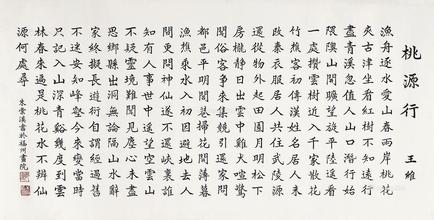 桃源行
王維
漁舟逐水愛山春兩岸桃花
夾古津坐看紅樹不知遠行
盡青溪忽值人山口潛行始
隈隩山開曠望旋平陸遙看
一處攢雲樹近入千家散花
竹樵客初傳漢姓名居人未
改秦衣服居人共住武陵源
還從物外起田園月明松下
房櫳靜日出雲中雞犬喧驚
聞俗客爭來集競引還家問
都邑平明閭巷掃花開薄暮
漁樵乘水入初因避地去人
間更問神仙遂不還峽裏誰
知有人事世中遙望空雲山
不疑靈境難聞見塵心未盡
思鄉縣出洞無論隔山水辭
家終擬長遊衍自謂經過舊
不迷安知峰壑今來變當時
只記入山深青谿幾度到雲
林春來遍是桃花水不辨仙
源何處尋
書於福州畫院